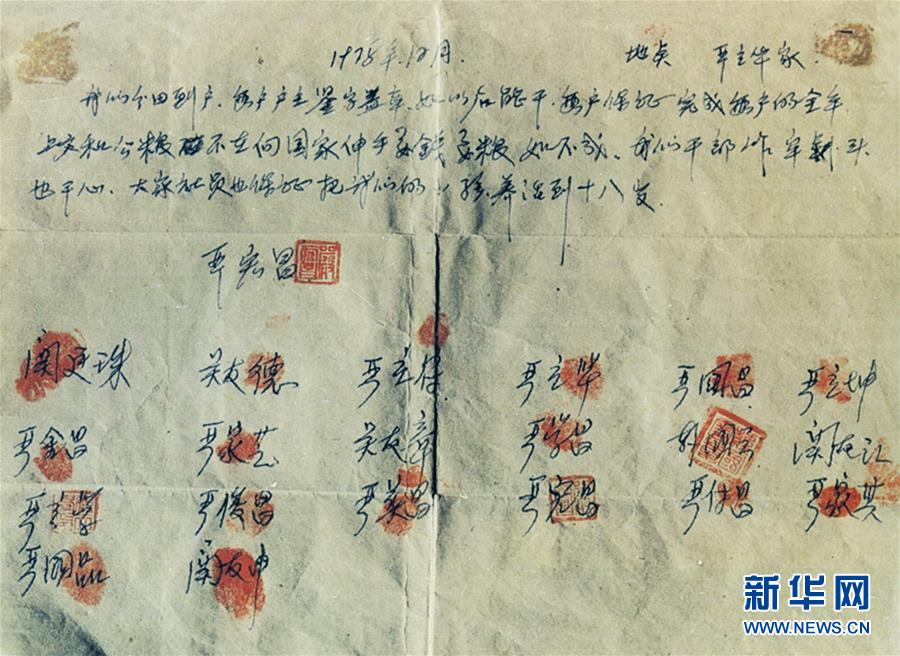 1978年12月. 地点 严立华家.
我们分田到户, 每户户主鉴字盖章, 如以后能干, 每户保证完成每户的全年
上交和公粮 不在向国家伸手要錢要粮 如不成, 我们干部作牢刹头
也干心, 大家社员也保证把我们的小孩养活到十八岁.
严宏昌
関廷珠 关友德 严立符 严立华 严国昌 严立坤
严金昌 严家芝 关友章 严学昌 韩国云 関友江
严立学 严俊昌 严美昌 严宏昌 严付昌 严家其
严国品 関友申
新华网
WWW.NEWS.CN